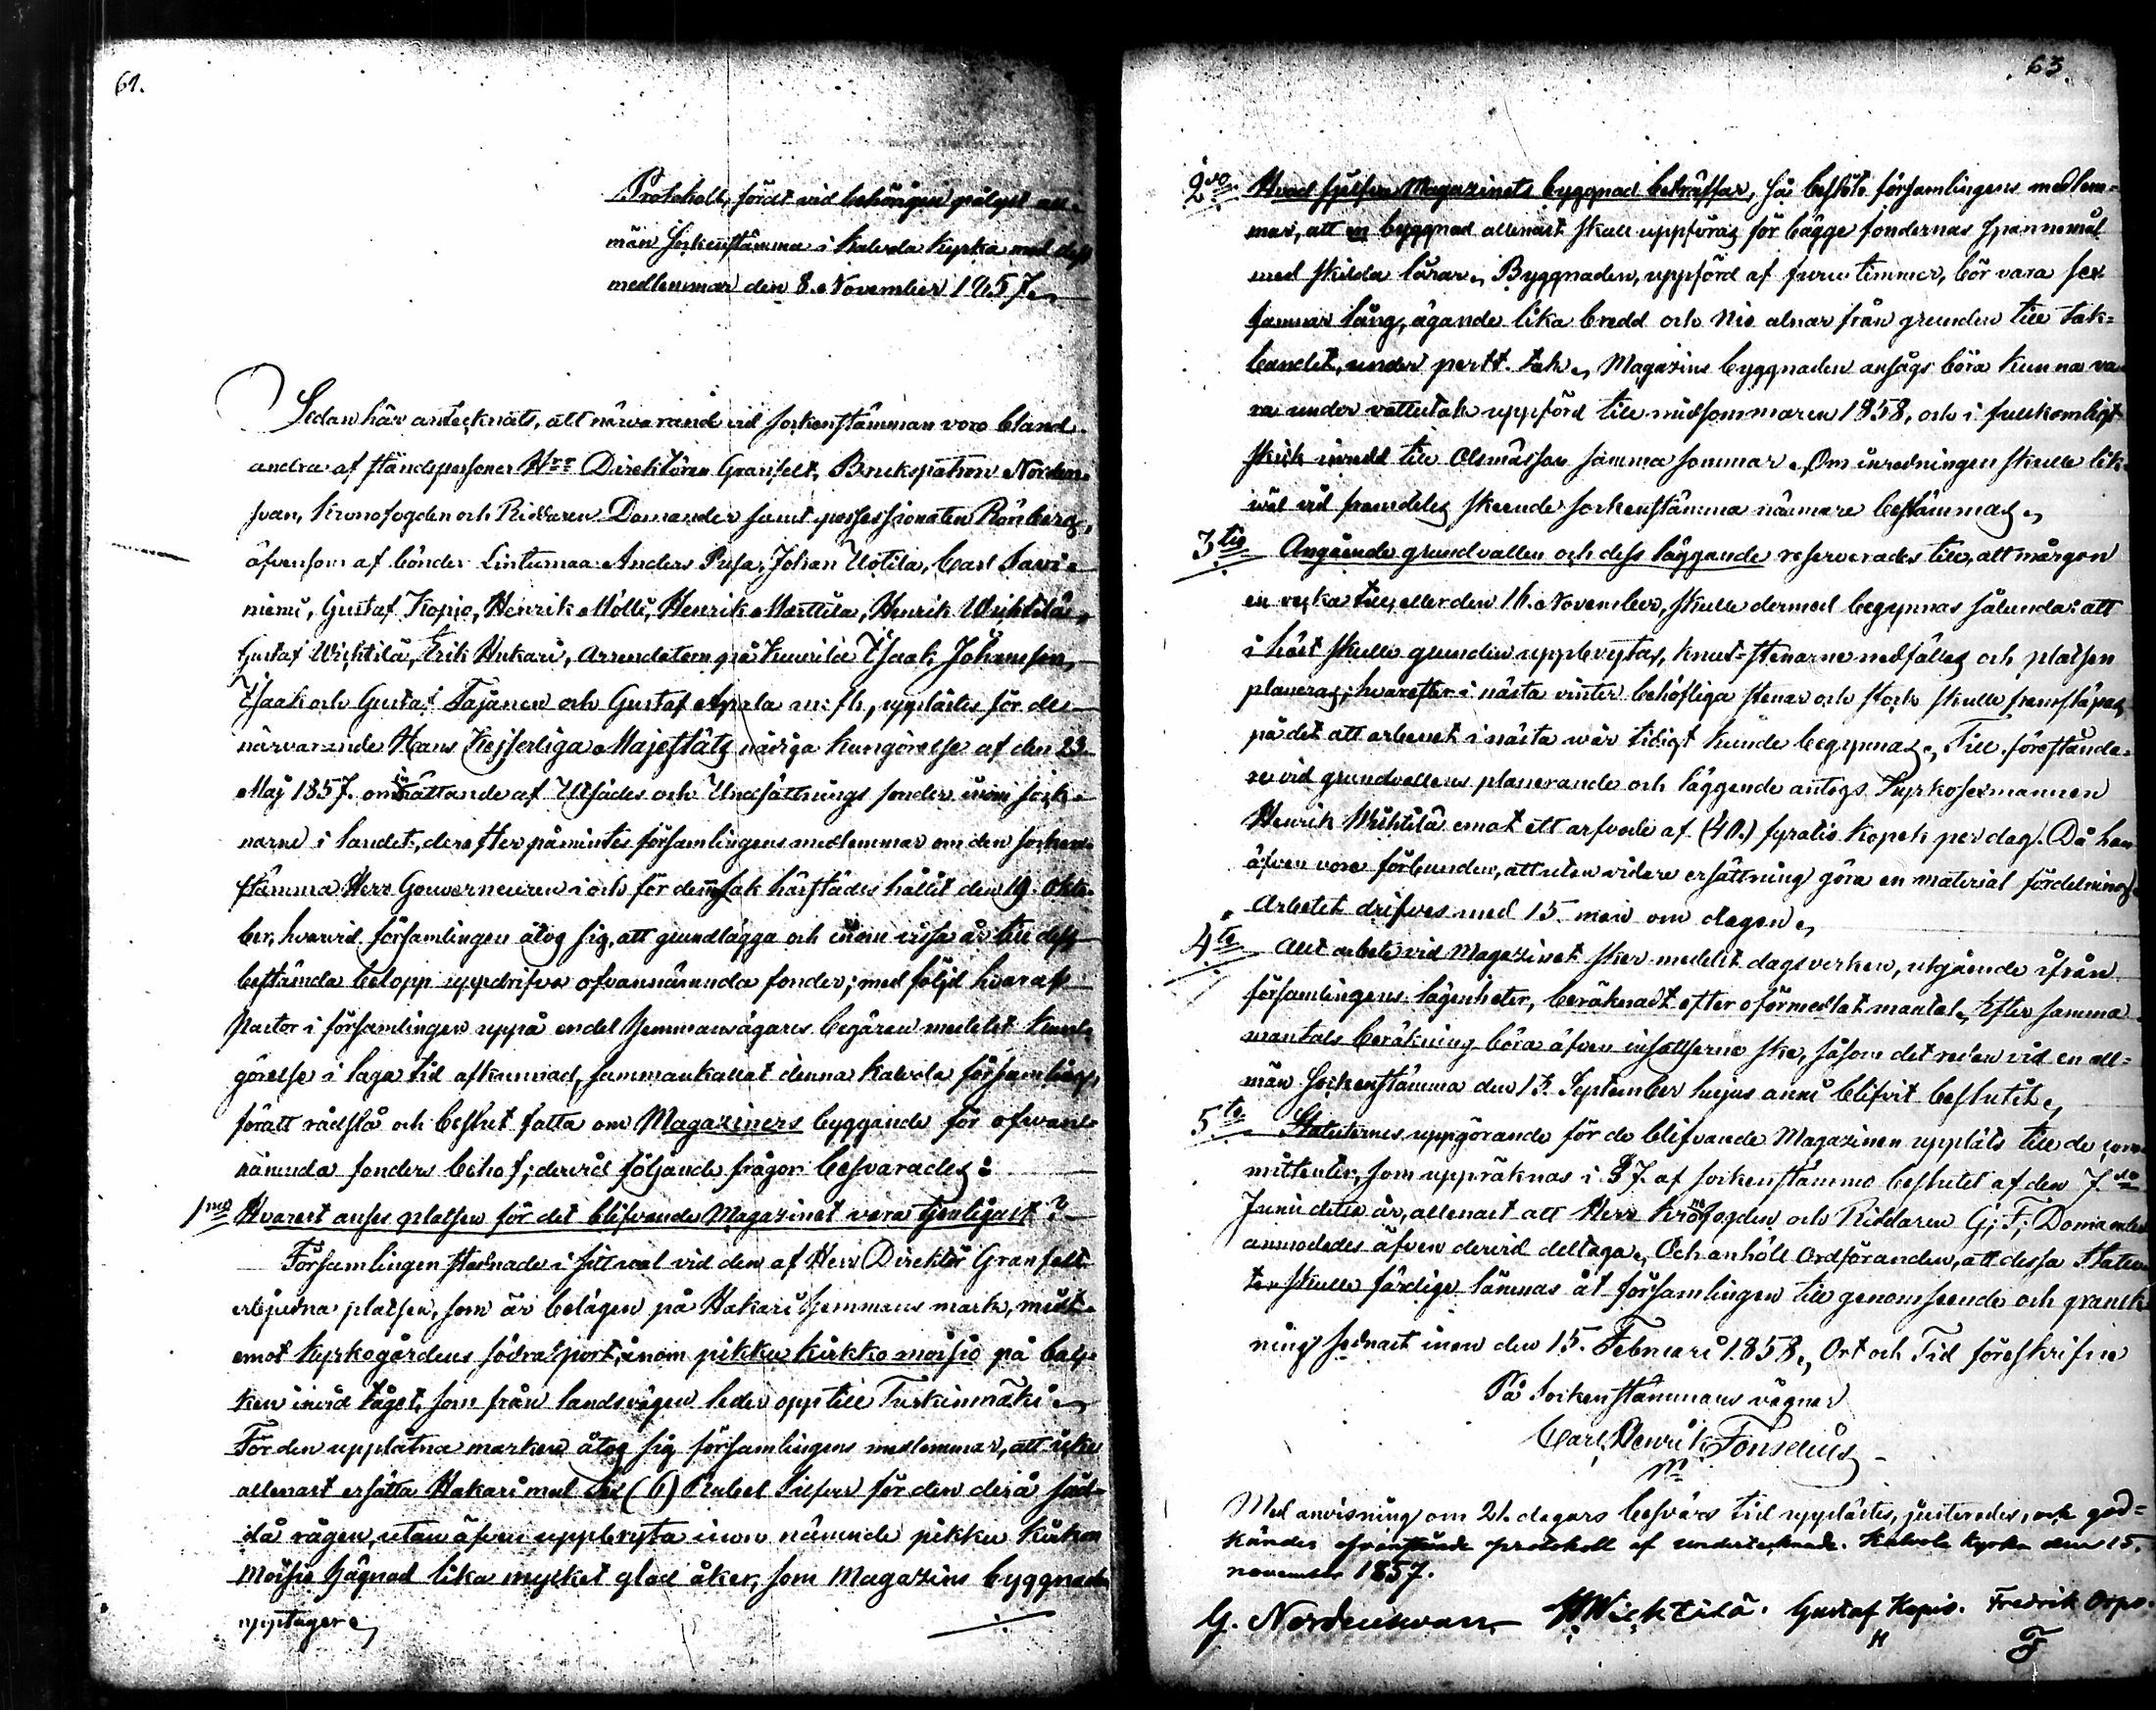 62.
Protokoll, fördt vid behörigen pålyst all-
män Sockenstämma i Kalvola Kyrka med dess
medlemmar den 8. November 1857.
Sedan här antecknats, att närvarande vid sockenstämman voro bland
andra af ståndspersoner Hrr Direktören Granfelt, Brukspatron Norden-
svan, Kronofogden och Riddaren Domander samt possessionaten Rönberg,
äfvensom af bönder Lintumaa Anders Pusa, Johan Uotila, Carl Savi-
niemi, Gustaf Kopio, Henrik Mölli, Henrik Marttila, Henrik Wichtilä,
Gustaf Wichtilä, Erik Hakari, Arrendatorn på Kuurila Isaak Johansson,
Isaak och Gustaf Tajanen och Gustaf Anala m: fl, upplästes för de
närvarande Hans Kejserliga Majestäts nådiga kungörelse af den 23
Maj 1857. om inrättande af Utsädes och Undsättnings fonder inom sock-
narne i landet, derefter påmintes församlingens medlemmar om den socken-
stämma Herr Gouverneuren i och för denna sak härstädes hållit den 19. Okto-
ber, hvarvid församlingen åtog sig, att grundlägga och inom vissa år till dess
bestämda belopp uppdrifva ofvannämnda fonder; med följd hvaraf
Pastor i församlingen uppå endel hemmansägares begäran medelst kun-
görelse i laga tid afkunnad, sammankallat denna Kalvola församling,
föratt rådslå och beslut fatta om Magaziners byggande för ofvan-
nämnda fonders behof; dervid följande frågor besvarades:
1mo Hvarest anses platsen för det blifvande Magazinet vara tjenligast?
Församlingen stadnade i sitt val vid den af Herr Direktör Granfelt
erbjudna platsen, som är belägen på Hakari hemmans mark, midt-
emot kyrkogårdens södra port, inom pikku kirkko moisio på bac-
ken invid tåget, som från landsvägen leder opp till Turkinmäki.
För den upplåtna marken åtog sig församlingens medlemmar, att icke
allenast ersätta Hakari med Sex (6) Rubel Silfver för den derå såd-
da rågen, utan äfven uppbryta inom nämnde pikku kirkon
Moisio hägnad lika mycket glad åker, som Magazins byggnaden
upptager.
63.
2do Hvad sjelfva Magazinets byggnad beträffar, så beslöto församlingens medlem-
mar, att en byggnad allenast skall uppföras för bägge fondernas Spannemål
med skilda lårar. Byggnaden, uppförd af furu timmer, bör vara sex
famnar lång, ägande lika bredd och nio alnar från grunden till tak-
bandet, under pertt. tak. Magazins byggnaden ansågs böra kunna va-
ra under vattutak uppförd till midsommaren 1858, och i fullkomligt
skick inredd till Olsmässan samma sommar. Om inredningen skulle lik-
väl vid framdeles skeende sockenstämma närmare bestämmas.
3tio Angående grundvallen och dess läggande reserverades till, att mårgon
en vecka till, eller den 16. November, skulle dermed begynnas sålunda: att
i höst skulle grunden uppbrytas, knut-stenarne nedfällas och platsen
planeras; hvarefter i nästa vinter behöfliga stenar och stock skulle framsläpas,
på det att arbetet i nästa vår tidigt kunde begynnas. Till förestånda-
re vid grundvallens planerande och läggande antogs Kyrkosexmannen
Henrik Wichtilä emot ett arfvode af (40.) fyratio kopek per dag. Då han
äfven vore förbunden, att utan vidare ersättning göra en material fördelning.
Arbetet drifves med 15. man om dagen.
4to Allt arbete vid Magazinet sker medelst dagsverken, utgående ifrån
församlingens lägenheter, beräknadt efter oförmedlat mantal. Efter samma
mantals beräkning böra äfven insatserne ske, såsom det redan vid en all-
män Sockenstämma den 13. September hujus anni blifvit beslutit.
5to Statuternes uppgörande för de blifvande Magazinen uppläts till de com-
mittenter, som uppräknas i § 7. af sockenstämmo beslutet af den 7.do
Junii detta år, allenast att Herr Kronofogden och Riddaren G; F; Domander
anmodades äfven dervid deltaga. Och anhöll Ordföranden, att dessa Statu-
ter skulle färdige lämnas åt församlingen till genomseende och gransk-
ning sednast inom den 15. Februari 1858. Ort och Tid föreskrifne
På Sockenstämmans vägnar
Carl Henrik Fonselius
Med anvisning om 21. dagars besvärs tid upplästes, justerades, och god-
kändes ofvanstående protokoll af undertecknade. Kalvola kyrka den 15.
november 1857.
G. Nordensvan H Wichtilä. Gustaf Kopio. Fredrik Orpo.
H F